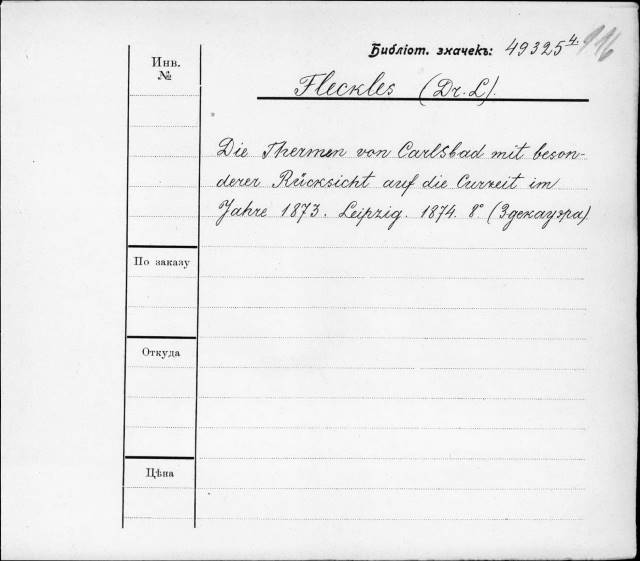 Библіот. значекъ: 49325 4. 916
Инв.
№
Fleckles (Dr. L).
Die Thermen von Carlsbad mit beson-
derer Rücksicht auf die Curzeit im
Jahre 1873. Leipzig. 1874. 8° (Здекауэра)
По заказу
Откуда
Цѣна